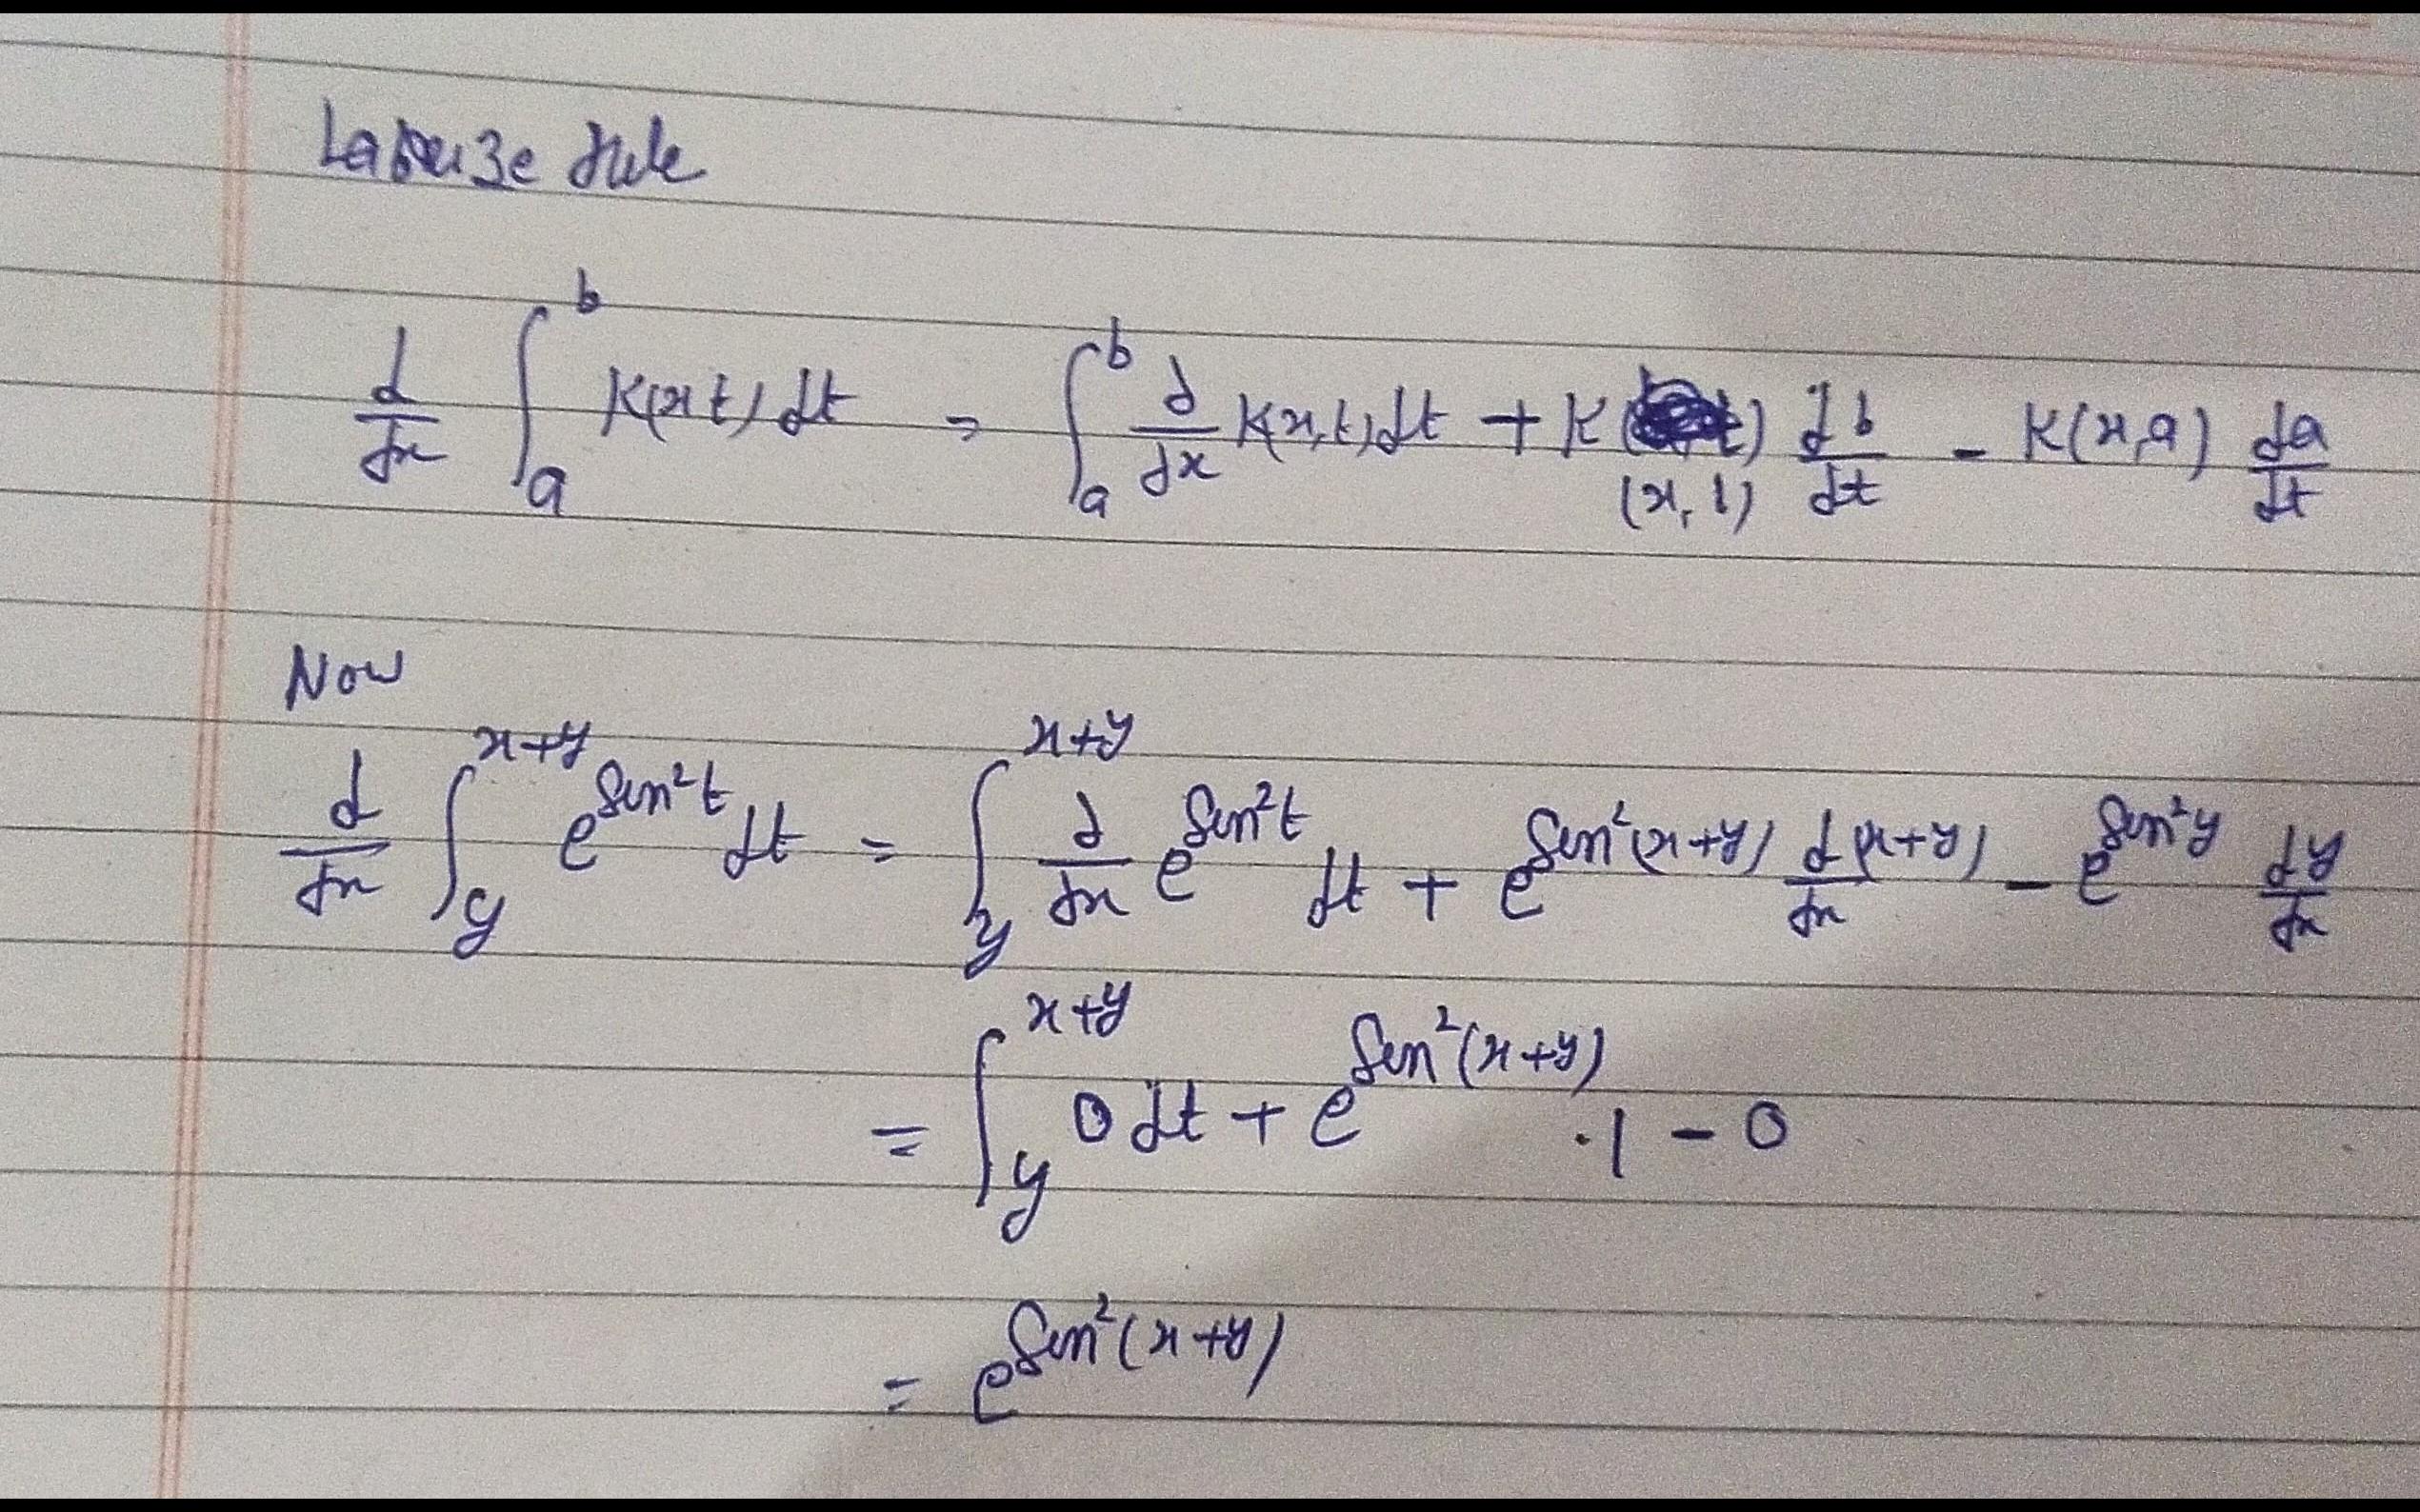 rule
d/dx ∫_a^b K(x t) dt = ∫_a^b d/dx K(x,t) dt + K (x, b) db/dt - K(x,a) da/dt
Now
d/dx ∫_y^{x+y} e^{sin²t} dt = ∫_y^{x+y} d/dx e^{sin²t} dt + e^{sin²(x+y)} d(x+y)/dx - e^{sin²y} dy/dx
= ∫_y^{x+y} 0 dt + e^{sin²(x+y)} · 1 - 0
= e^{sin²(x+y)}